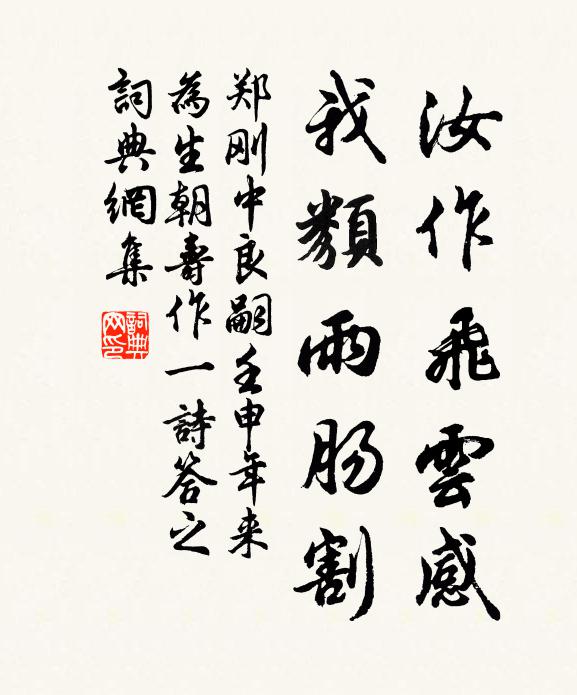 汝作飛雲感
我類雨肠割
郑刚中良嗣壬申年来
為生朝壽作一詩答之
詞典網集
詞典
网印